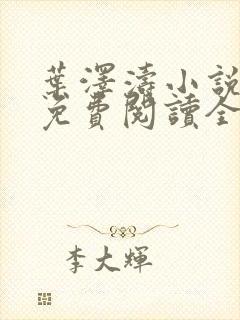 葉澤濤小說
免費閱讀全
李大輝